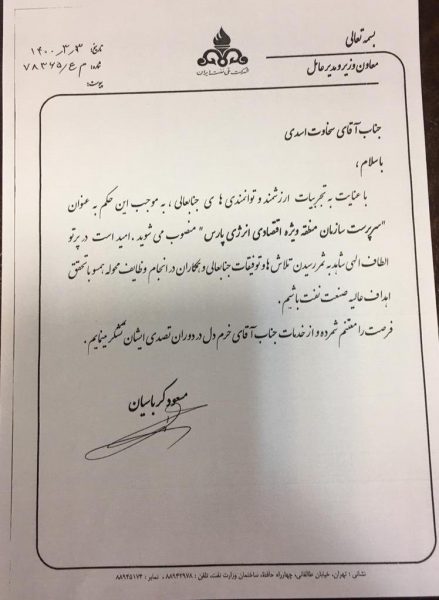 بسمه تعالی
معاون وزیر و مدیر عامل
شرکت ملی نفت ایران
تاریخ: ۱۴۰۰/۳/۳
شماره: م ع/۷۸۳۶۵
پیوست:
جناب آقای سخاوت اسدی
با سلام ،
با عنایت به تجربیات ارزشمند و توانمندی های جنابعالی ، به موجب این حکم به عنوان
"سرپرست سازمان منطقه ویژه اقتصادی انرژی پارس" منصوب می شوید . امید است در پرتو
الطاف الهی شاهد به ثمر رسیدن تلاش ها و توفیقات جنابعالی و همکاران در انجام وظایف محوله همسو با تحقق
اهداف عالیه صنعت نفت باشیم .
فرصت را مغتنم شمرده و از خدمات جناب آقای خرم دل در دوران تصدی ایشان تشکر مینمایم .
مسعود کرباسیان
نشانی : تهران، خیابان طالقانی، چهارراه حافظ، ساختمان وزارت نفت، تلفن : ۸۸۹۴۲۹۷۸ ، نمابر : ۸۸۹۴۵۱۷۴